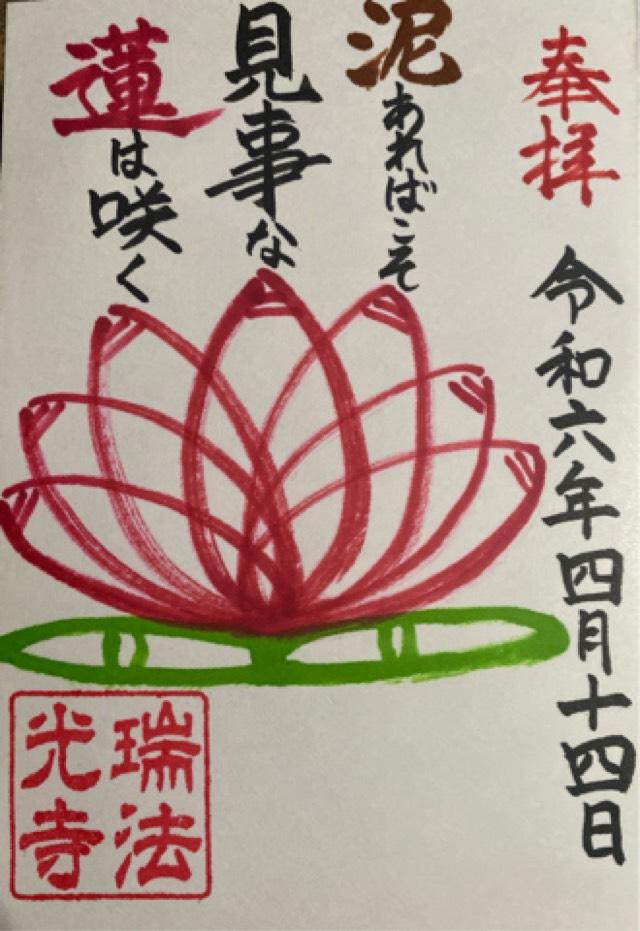 奉拝
令和六年四月十四日
泥あればこそ
見事な
蓮は咲く
瑞法
光寺